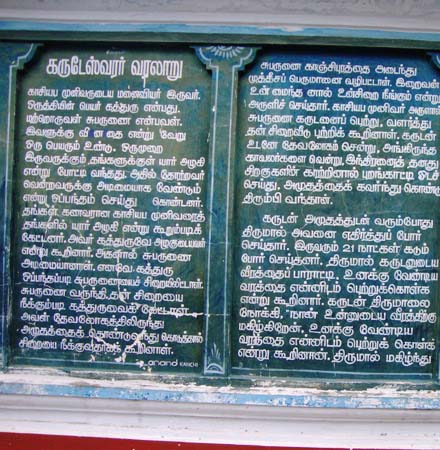 கருடேஸ்வரர் வரலாறு
காசியப முனிவருடைய மனைவியர் இருவர்.
ஒருத்தியின் பெயர் கத்துரு என்பது.
மற்றொருவள் சுபருணை என்பவள்.
இவளுக்கு வினதை என்று வேறு
ஒரு பெயரும் உண்டு. ஒருமுறை
இருவருக்கும் தங்களுக்குள் யார் அழகி
என்று போட்டி வந்தது. அதில் தோற்றவர்
வென்றவருக்கு அடிமையாக வேண்டும்
என்று ஒப்பந்தம் செய்து கொண்டனர்.
தங்கள் கணவரான காசியப முனிவரைத்
தங்களில் யார் அழகி என்று கூறும்படிக்
கேட்டனர். அவர் கத்துருவே அழகுடையவள்
என்று கூறினார். அதனால் சுபருணை
அடிமையானாள். எனவே கத்துரு
ஒப்பந்தப்படி சுபருணையைச் சிறையிலிட்டாள்.
சுபருணை வருந்தி, தன் சிறையை
நீக்கும்படி கத்துருவைக் கேட்டாள்.
அவள் தேவலோகத்திலிருந்து
அமுதத்தைக் கொண்டுவந்து கொடுத்தால்
சிறையை நீக்குவதாகக் கூறினாள்.
anand
சுபருணை காஞ்சிபுரத்தை அடைந்து
முத்தீசப் பெருமானை வழிபட்டாள். இறைவன்
உன் மைந்தனால் உன்சிறை நீங்கும் என்று
அருளிச் செய்தார். காசியப முனிவர் அருளால்
சுபருணை கருடனைப் பெற்று, வளர்த்து
தன் சிறைவீடு பற்றிக் கூறினாள். கருடன்
உடனே தேவலோகம் சென்று, அங்கிருந்த
காவலர்களை வென்று, இந்திரனைத் தனது
சிறகுகளின் காற்றினால் புறங்காட்டி ஓடச்
செய்து, அமுதத்தைக் கவர்ந்து கொண்டு
திரும்பி வந்தான்.
கருடன் அமுதத்துடன் வரும்போது
திருமால் அவனை எதிர்த்துப் போர்
செய்தார். இருவரும் 21 நாட்கள் கடும்
போர் செய்தனர். திருமால் கருடனுடைய
வீரத்தைப் பாராட்டி, உனக்கு வேண்டிய
வரத்தை என்னிடம் பெற்றுக்கொள்க
என்று கூறினார். கருடன் திருமாலை
நோக்கி, "நான் உன்னுடைய வீரத்திற்கு
மகிழ்கிறேன். உனக்கு வேண்டிய
வரத்தை என்னிடம் பெற்றுக் கொள்க"
என்று கூறினான். திருமால் மகிழ்ந்து